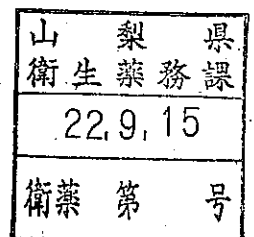 山梨県
衛生薬務課
22.9.15
衛薬第 号